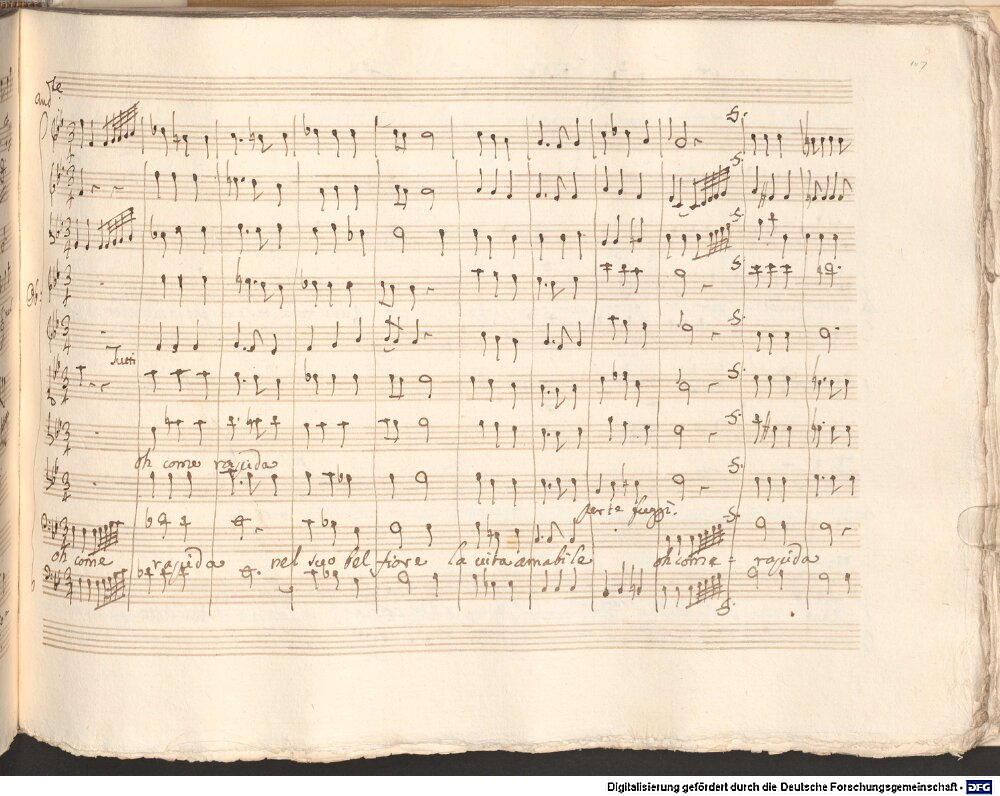 107
And.te
Ob.
Tutti
oh come rapida
per te fuggì.
oh come rapida nel suo bel fiore la vita amabile oh come = rapida
Digitalisierung gefördert durch die Deutsche Forschungsgemeinschaft - DFG